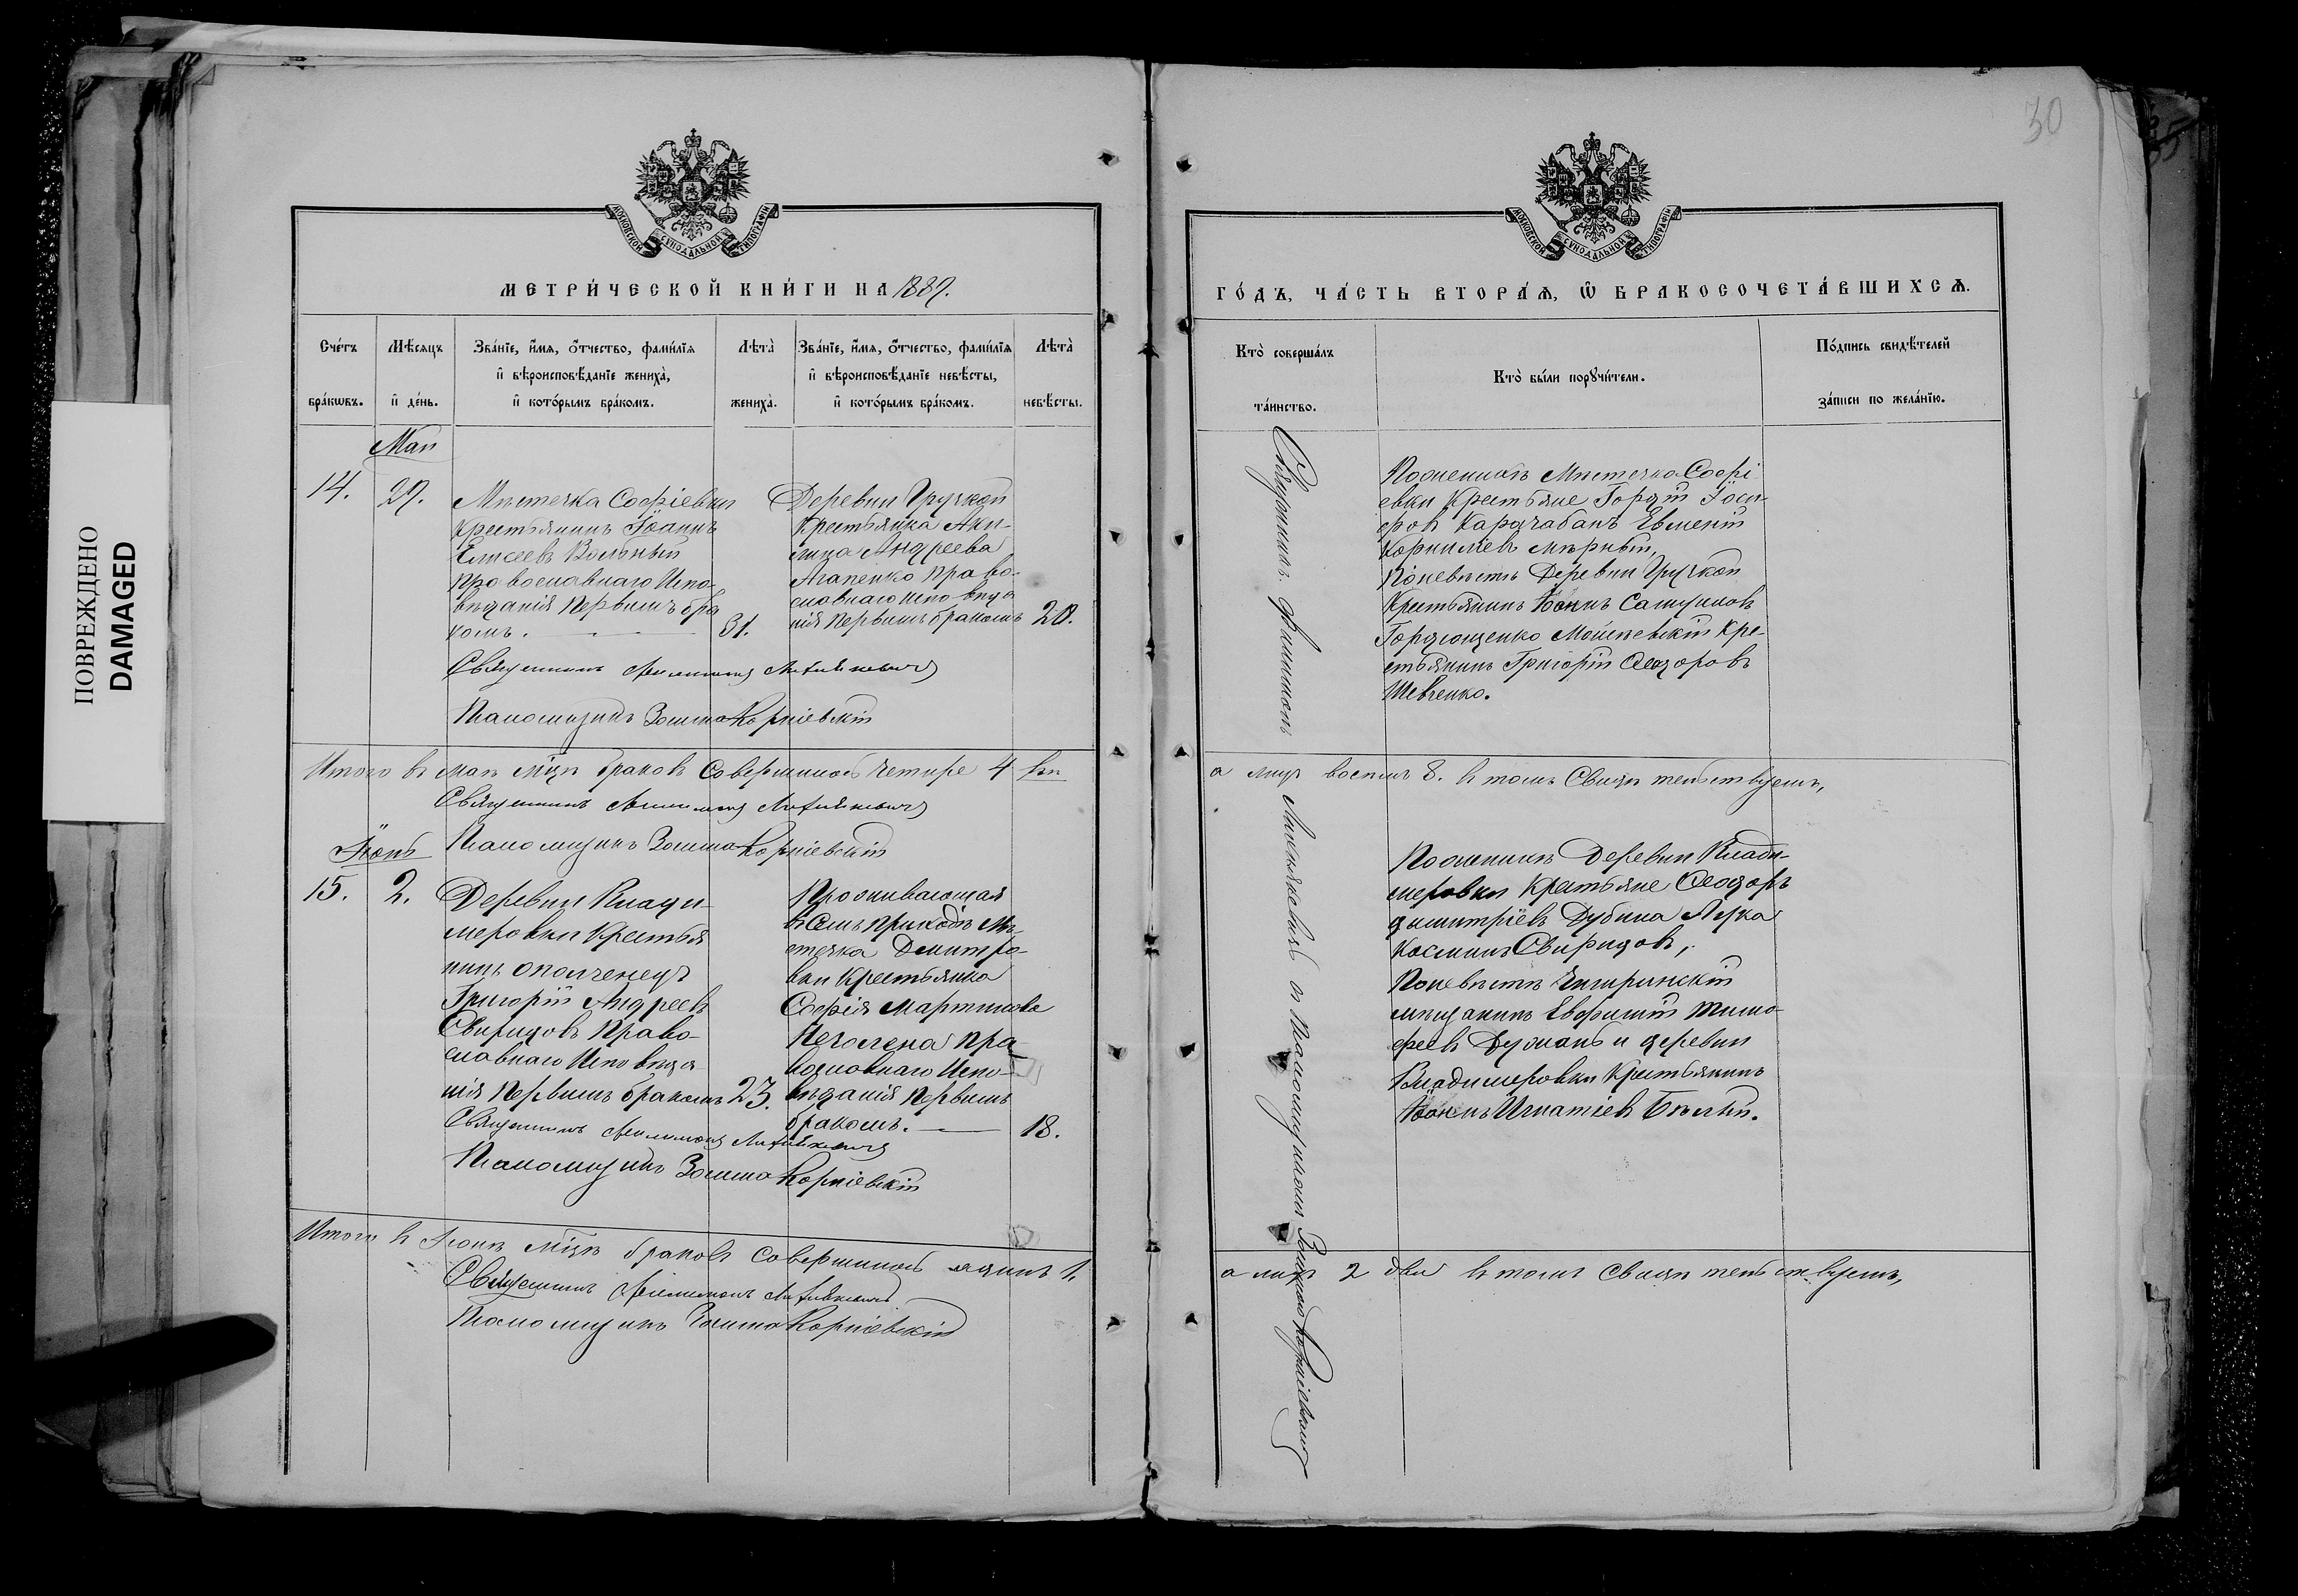 ПОВРЕЖДЕНО
DAMAGED
30
МОСКОВСКОЙ СѴНОДАЛЬНОЙ ТИПОГРАФІИ
МЕТРИ́ЧЕСКОЙ КНИ́ГИ НА 1889.
Сче́тъ бра́кωвъ.
Мѣ́сяцъ и҆ де́нь.
Зва́нїе, и҆́мя, ѻ҆́тчество, фами́лїя
и҆ вѣроисповѣ́данїе жениха̀,
и҆ кото́рымъ бра́комъ.
Лѣта̀ жениха̀.
Зва́нїе, и҆́мя, ѻ҆́тчество, фами́лїя
и҆ вѣроисповѣ́данїе невѣ́сты,
и҆ кото́рымъ бра́комъ.
Лѣта̀ невѣ́сты.
Маи
14.
Мѣстечка Софіевки
Крестьянинъ Іоаннъ
Елисеевъ Вольный
православнаго Испо-
вѣданія первымъ бра
комъ.
31.
Деревни Грузкой
Крестьянка Аки-
лина Андреева
Агапенко право-
славнаго исповѣда
нія первымъ бракомъ
20.
Священникъ Филимонъ
Псаломщикъ Зосима Корніевскій
Итого въ маѣ м͠цѣ браковъ совершилось четыре 4
Священникъ Филимонъ
Псаломщикъ Зосима Корніевскій
Іюнь
15.
2.
Деревни Влади-
меровки Крестья
нинъ ополченецъ
Григорій Андреевъ
Свиридовъ Право-
славнаго Исповѣда
нія первымъ бракомъ
23.
Проживающая
въ семъ приходѣ Мѣ-
стечка Дмитро-
вки Крестьянка
Софія Мартинова
Печолена пра-
вославнаго Испо-
вѣданія первымъ
бракомъ.
18.
Священникъ Филимонъ
Псаломщикъ Зосима Корніевскій
Итого въ Іюнѣ м͠цѣ браковъ совершилось одинъ 1.
Священникъ Филимонъ
Псаломщикъ Зосима Корніевскій
МОСКОВСКОЙ СѴНОДАЛЬНОЙ ТИПОГРАФІИ
ГО́ДЪ, ЧА́СТЬ ВТОРА́Ѧ, Ѡ҆ БРАКОСОЧЕТА́ВШИХСѦ.
Кто̀ соверша́лъ
та́инство.
Кто̀ бы́ли порꙋчи́тели.
По́дпись свидѣ́телей
за́писи по жела́нїю.
Священникъ Филимонъ
съ Псаломщикомъ Зосимою Корніевскимъ
По женихѣ Мѣстечка Софі-
евки Крестьяне Гордій Іоси-
фовъ Карачабанъ Евменій
Корниліевъ Мѣрный,
По невѣстѣ Деревни Грузкой
Крестьянинъ Іоаннъ Самуиловъ
Гордющенко
Крестьянинъ Григорій Ѳеодоровъ
Шевченко.
а лицъ восемъ 8. въ томъ свидѣтельствуемъ,
По женихѣ Деревни Влади-
меровки Крестьяне Ѳеодоръ
Димитріевъ Дубина
Косминъ Свиридовъ,
По невѣстѣ Чигиринскій
мѣщанинъ Евфимій Тимо-
феевъ и деревни
Владимеровки Крестьянинъ
Іоаннъ Игнатіевъ Бѣлый.
а лицъ 2 два въ томъ свидѣтельствуемъ,